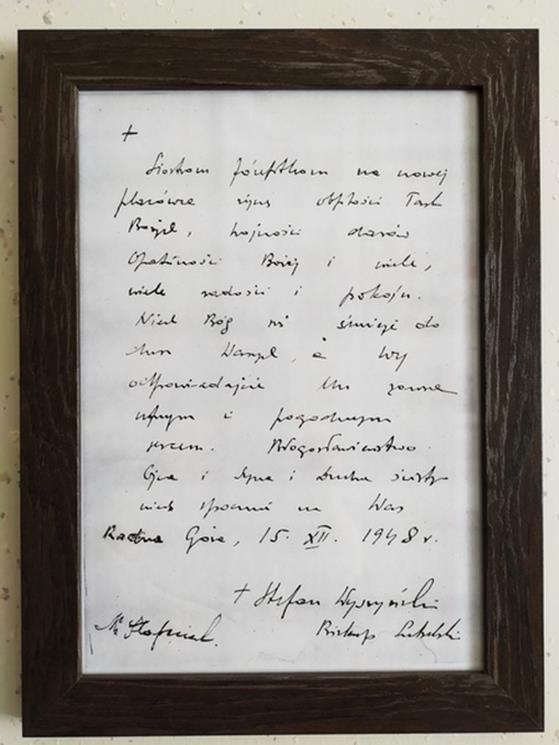 +
Siostrom Józefitkom na nowej
placówce życzę obfitości Task
Bożych, hojności darów
Opatrzności Bożej i wiele,
wiele radości i pokoju.
Niech Bóg się śmieje do
dusz Waszych, a Wy
odpowiadajcie Mu zawsze
ufnym i pogodnym
sercem. Błogosławieństwo
Ojca i Syna i Ducha świętego
niech spocznie na Was
Radna Góra, 15. XII. 1948 r.
+ Stefan Wyszyński
Biskup Lubelski